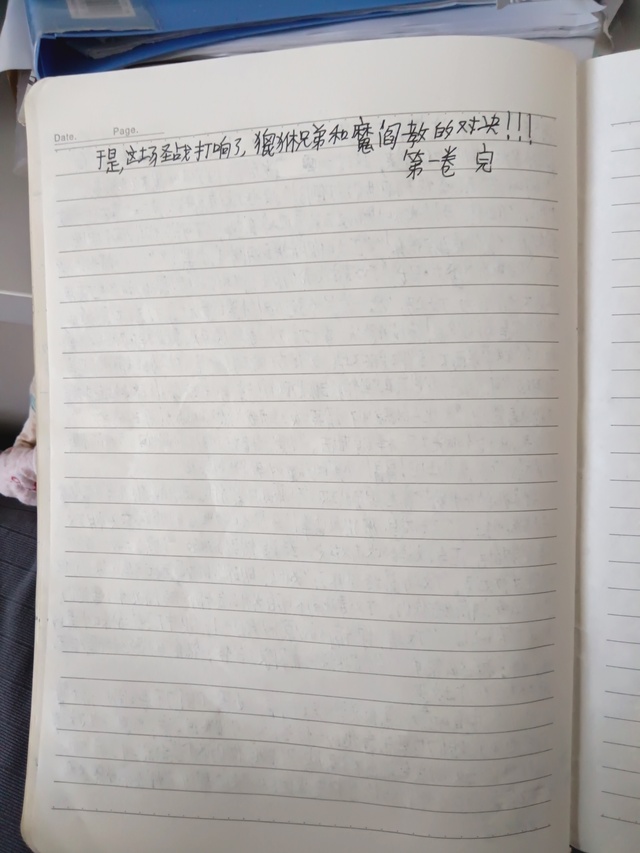 Date. Page.
于是,这场圣战打响了,貔貅兄弟和魔阎教的对决!!!
第一卷 完